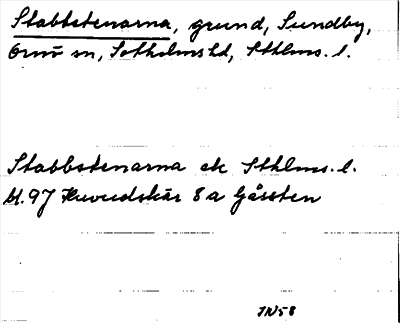 Stabbstenarna, grund, Sundby,
Ornö sn, Sotholms hd, Sthlms. l.
Stabbstenarna ek Sthlms. l.
bl. 97 Huvudskär 8 a Gåssten
IN58